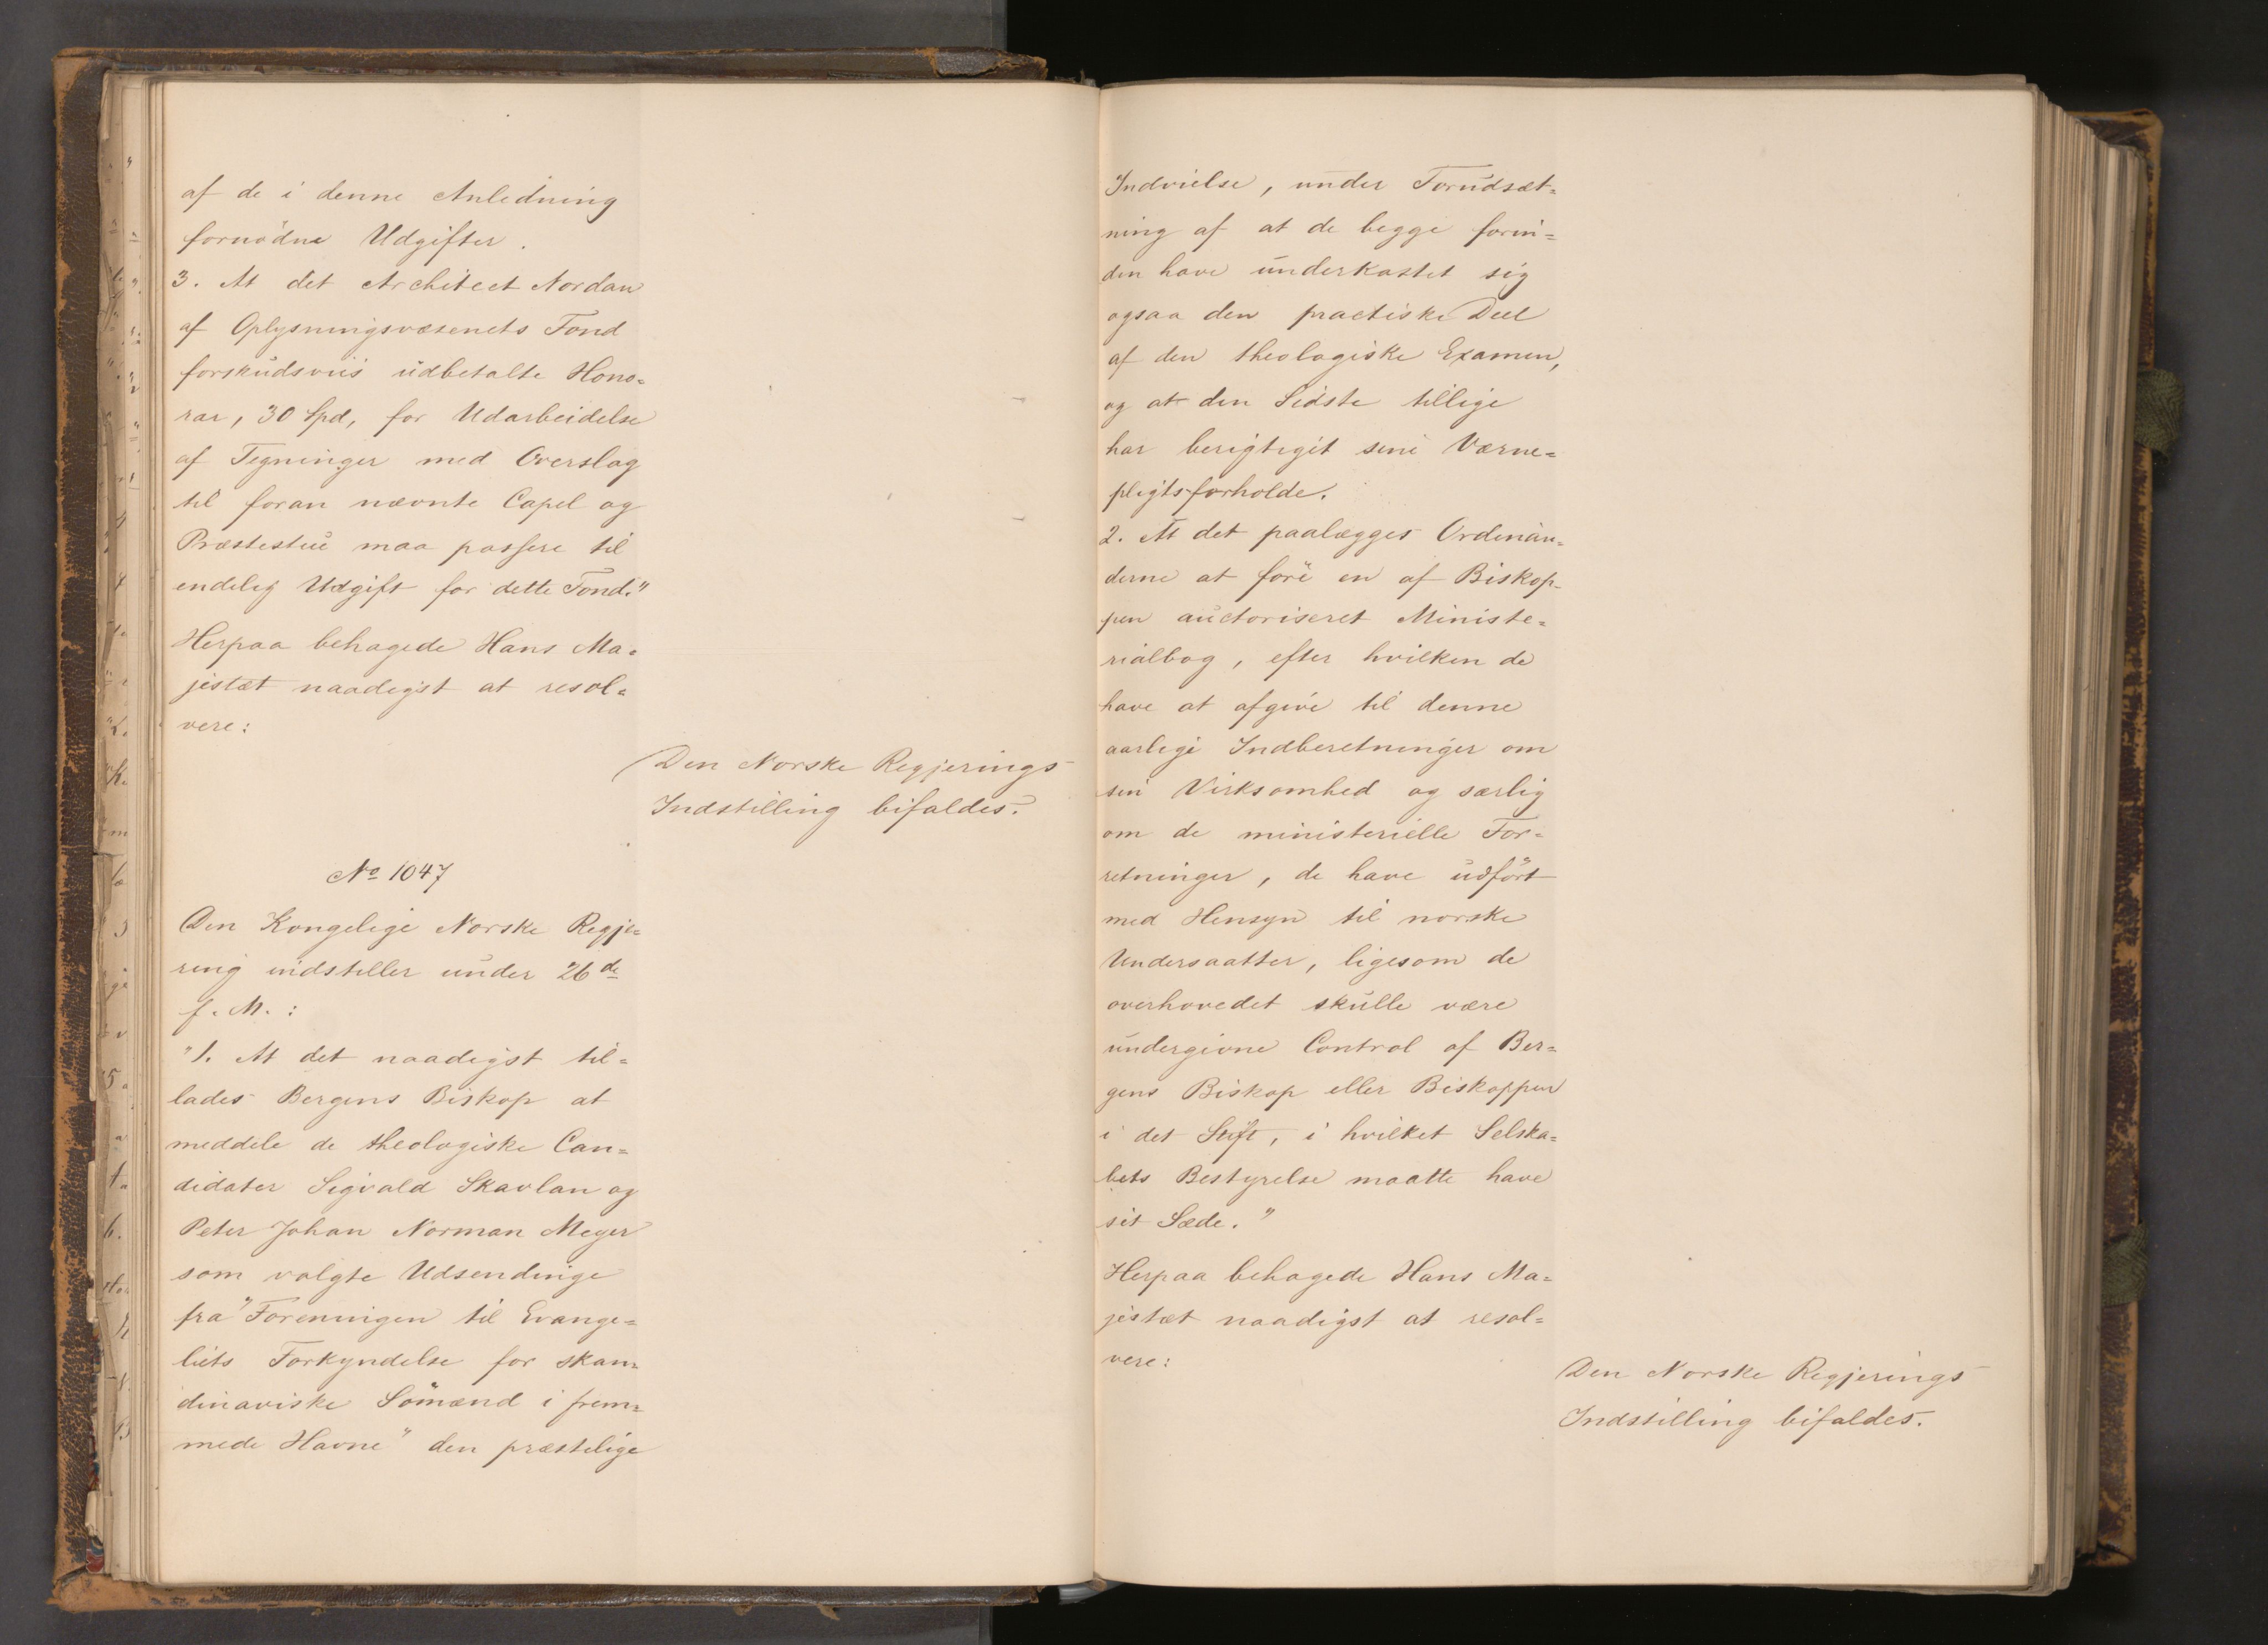 af de i denne Anledning
fornödne Udgifter.
3. At det Architect Nordan
af Oplysningsvæsenets Fond
forskudsviis udbetalte Hono=
rar, 30 Spd, for Udarbeidelse
af Tegninger med Overslag
til foran nævnte Capel og
Præstestue maa passere til
endelig Udgift for dette Fond."
Herpaa behagede Hans Ma=
jestæt naadigst at resol=
vere:
Den Norske Regjerings
Indstilling bifaldes.
No 1047
Den Kongelige Norske Regje=
ring indstiller under 26de
f. M.:
"1. At det naadigst til=
lades Bergens Biskop at
meddele de theologiske Can=
didater Sigvald Skavlan og
Peter Johan Norman Meyer
som valgte Udsendinge
fra "Foreningen til Evange=
liets Forkyndelse for skan=
dinaviske Sömænd i frem=
mede Havne" den præstelige
Indvielse, under Forudsæt=
ning af at de begge forin=
den have underkastet sig
ogsaa den practiske Deel
af den theologiske Examen,
og at den Sidste tillige
har berigtiget sine Værne=
pligtsforholde.
2. At det paalægges Ordinan=
derne at före en af Biskop=
pen auctoriseret Ministe=
rialbog, efter hvilken de
have at afgive til denne
aarlige Indberetninger om
sin Virksomhed og særlig
om de ministerielle For=
retninger, de have udfört
med Hensyn til norske
Undersaatter, ligesom de
overhovedet skulle være
undergivne Control af Ber=
gens Biskop eller Biskoppen
i det Stift, i hvilket Selska=
bets Bestyrelse maatte have
sit Sæde."
Herpaa behagede Hans Ma=
jestæt naadigst at resol=
vere:
Den Norske Regjerings
Indstilling bifaldes.